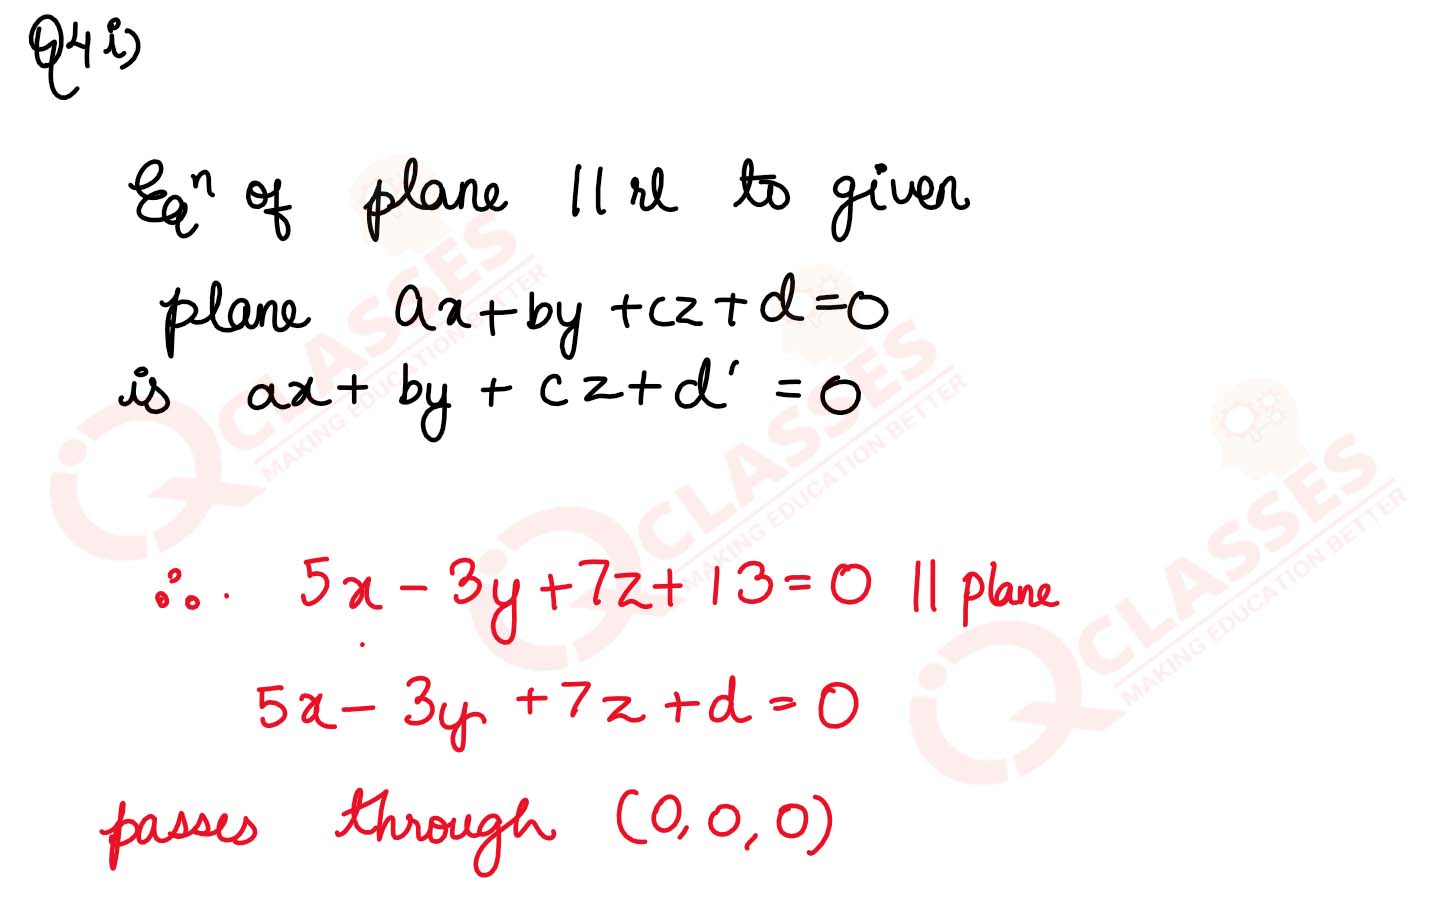 Q4 i)
Eqⁿ of plane ||rl to given
plane ax+by+cz+d=0
is ax+by+cz+d'=0
∴ 5x-3y+7z+13=0 || plane
5x-3y+7z+d=0
passes through (0,0,0)
iQ CLASSES
MAKING EDUCATION BETTER
iQ CLASSES
MAKING EDUCATION BETTER
iQ CLASSES
MAKING EDUCATION BETTER